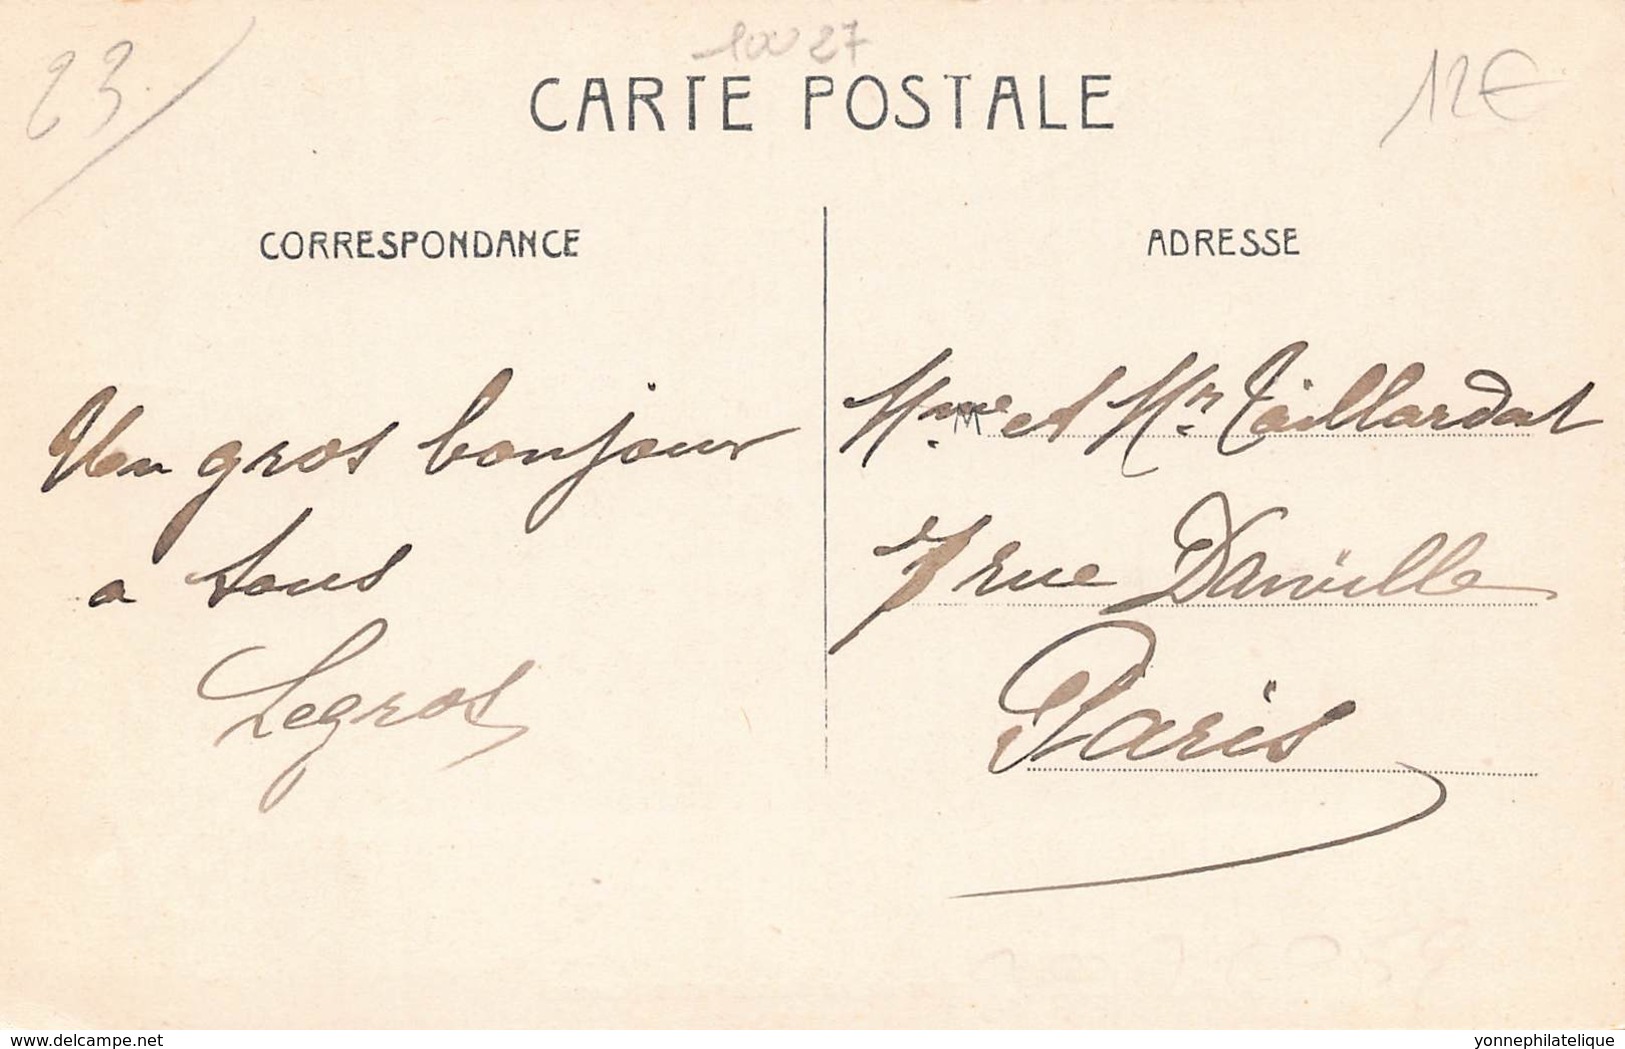 23
10027
12€
CARTE POSTALE
CORRESPONDANCE
ADRESSE
Un gros bonjour
a tous
Legros
Mme et Mr Taillardat
M
7 rue Danville
Paris
delcampe.net
yonnephilatelique